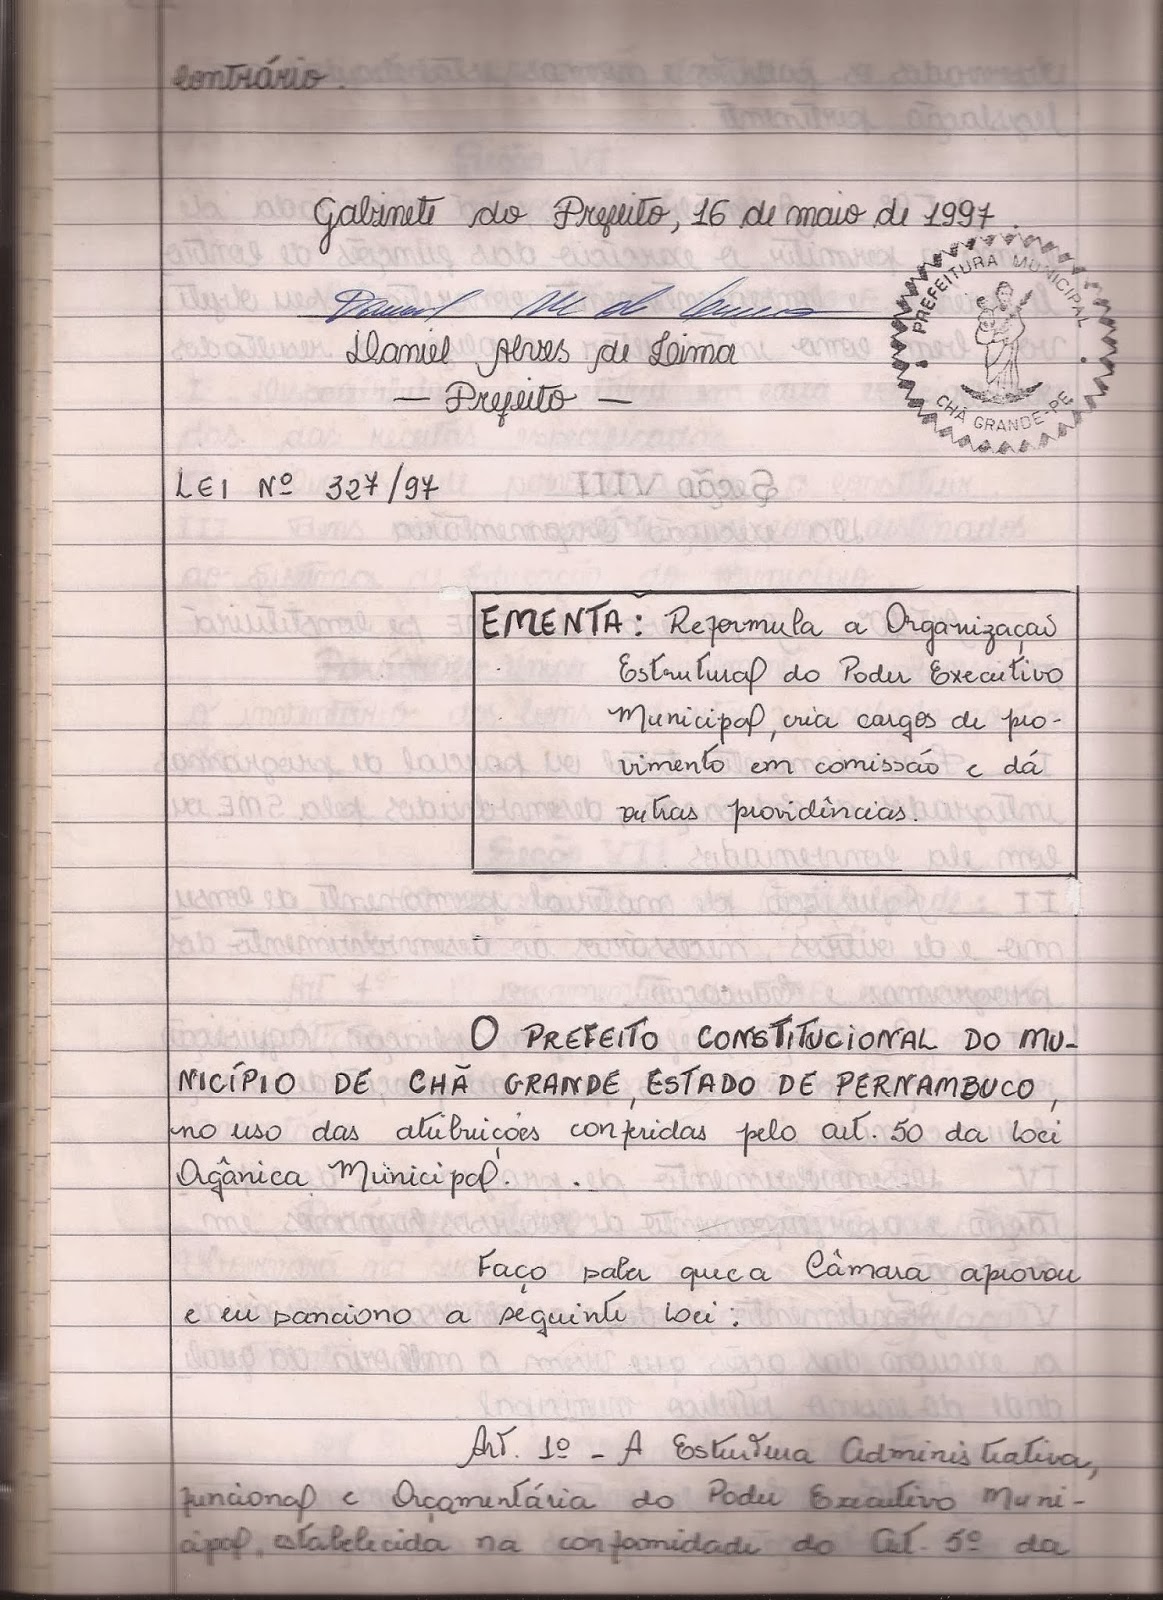 contrário.
Gabinete do Prefeito, 16 de maio de 1997.
Daniel Alves de Lima
— Prefeito —
PREFEITURA MUNICIPAL
CHÃ GRANDE-PE
LEI Nº 327/97
EMENTA: Reformula a Organização
Estrutural do Poder Executivo
Municipal, cria cargos de pro-
vimento em comissão e dá
outras providências.
O PREFEITO CONSTITUCIONAL DO MU-
NICÍPIO DE CHÃ GRANDE, ESTADO DE PERNAMBUCO,
no uso das atribuições conferidas pelo art. 50 da Lei
Orgânica Municipal.
Faço saber que a Câmara aprovou
e eu sanciono a seguinte Lei:
Art. 1º - A Estrutura Administrativa,
funcional e Orçamentária do Poder Executivo Muni-
cipal, estabelecida na conformidade do Art. 5º da